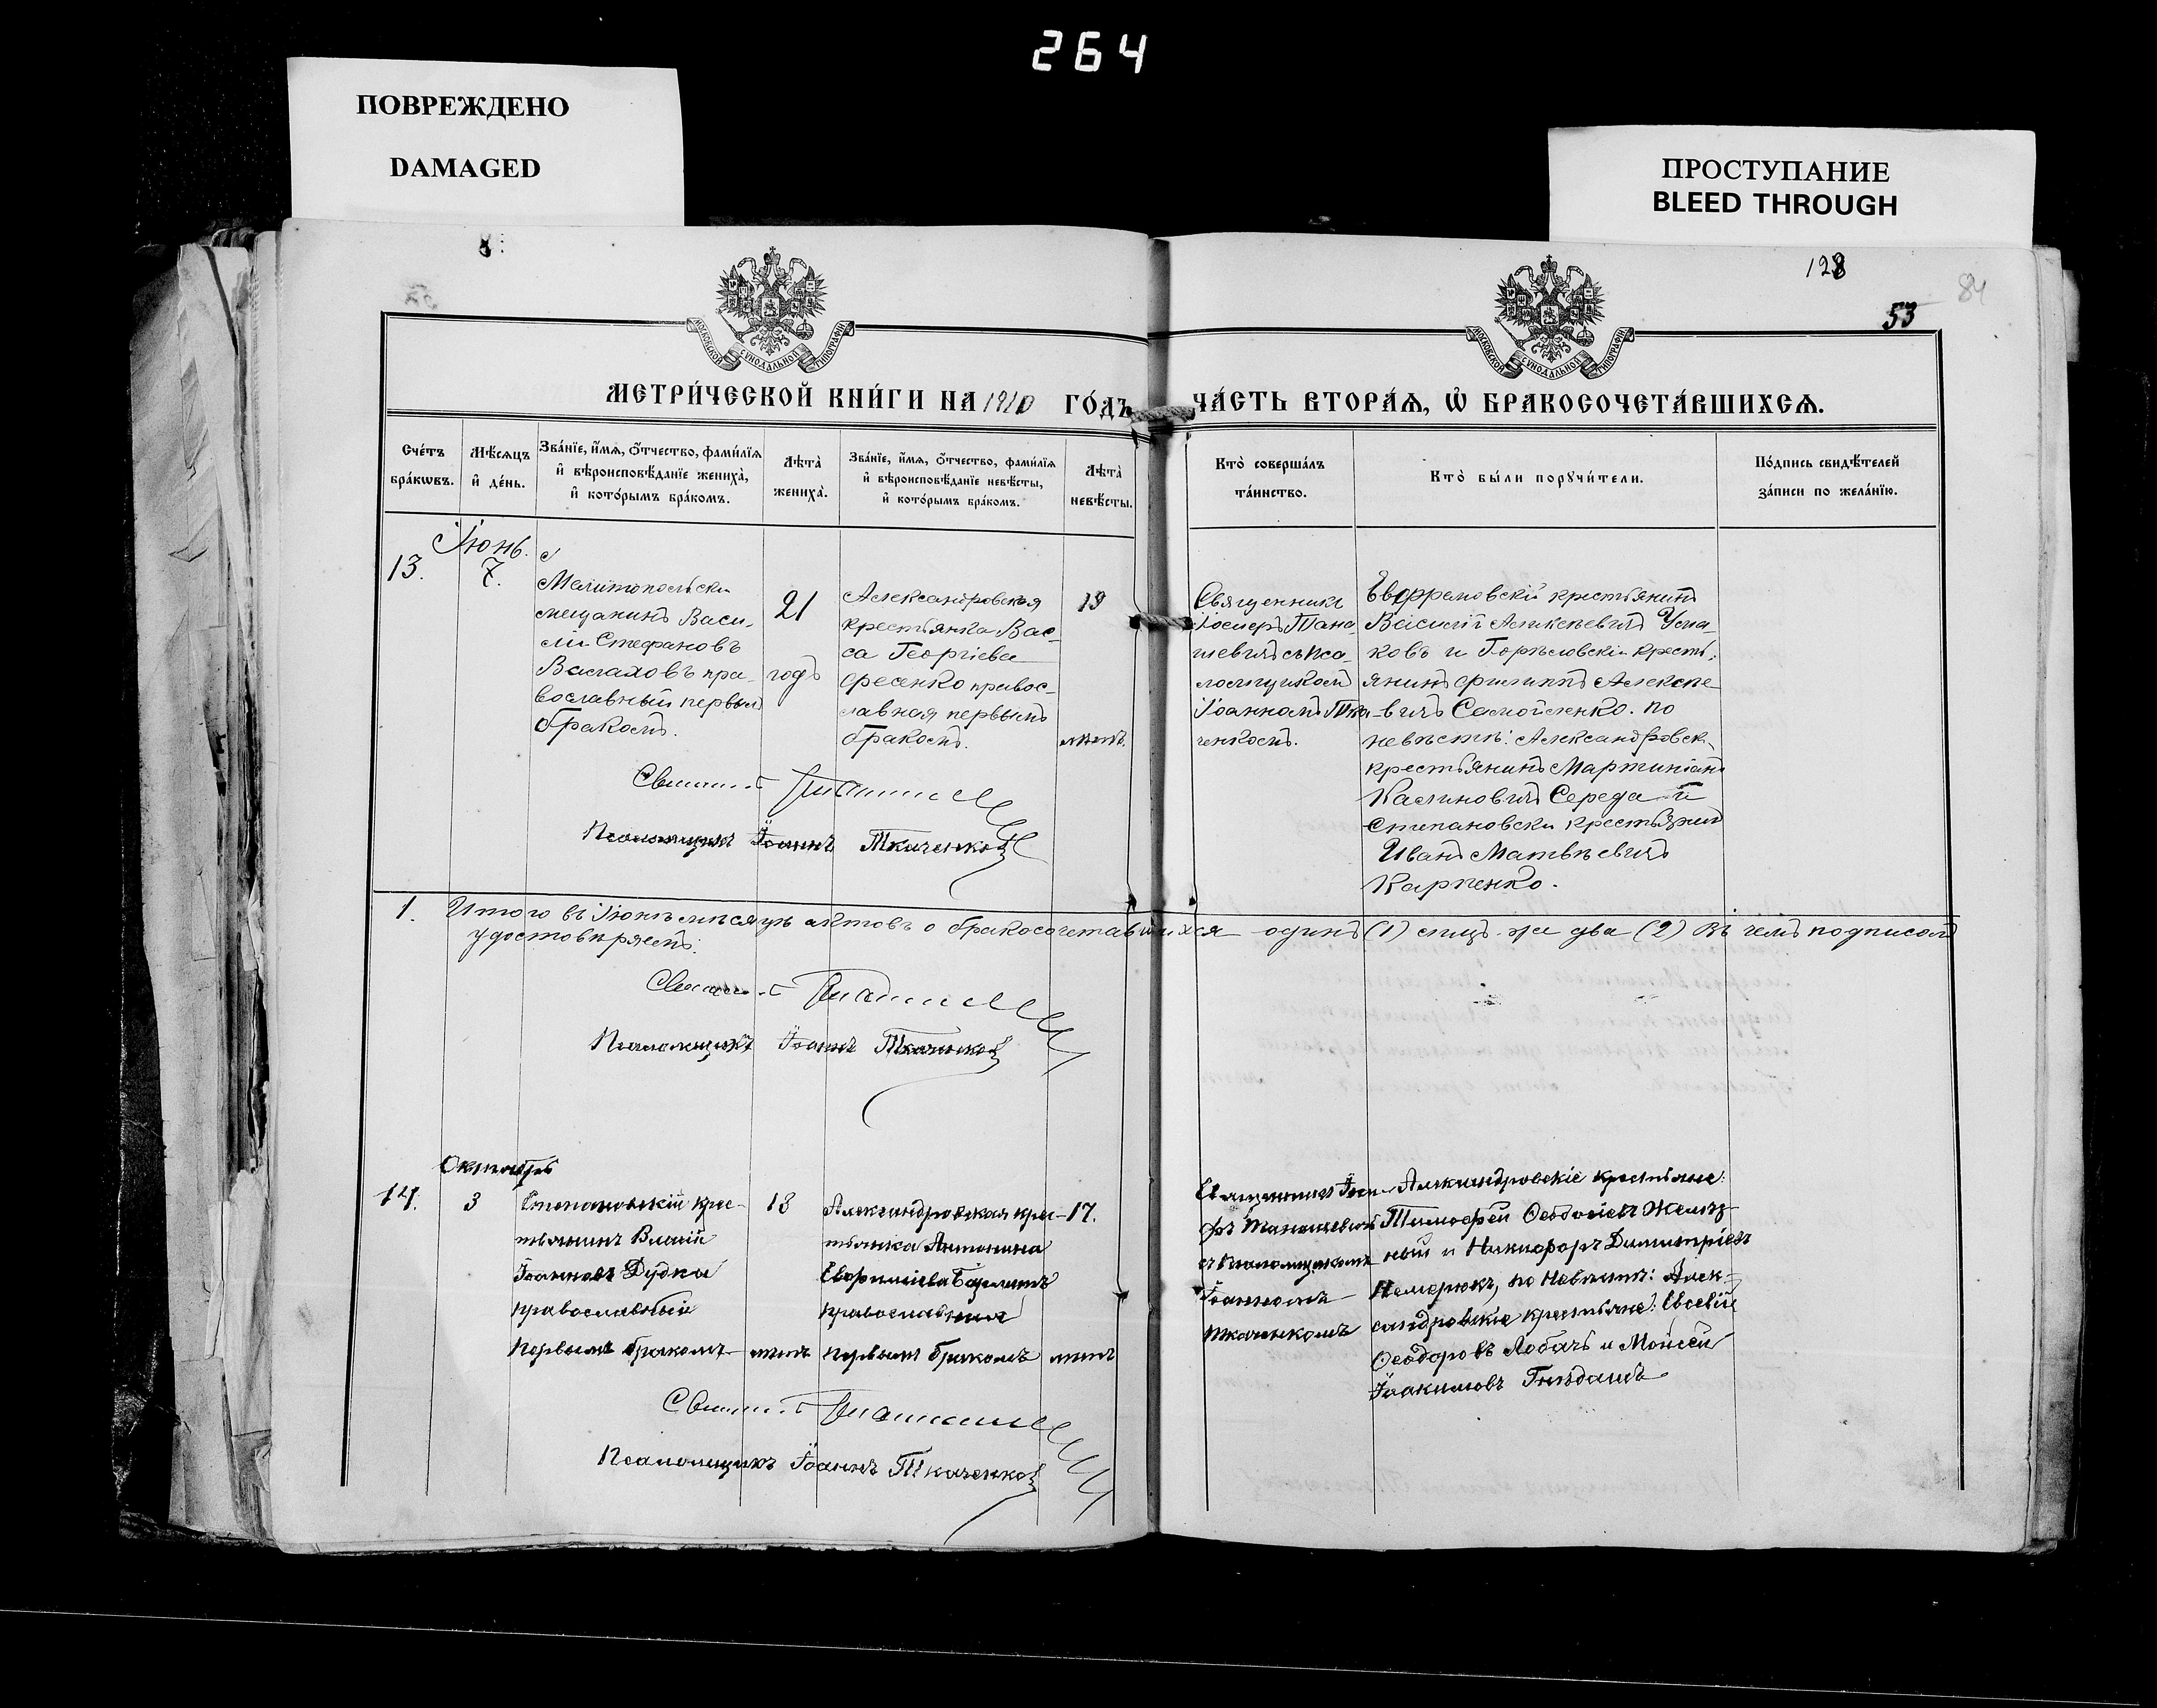 264
ПОВРЕЖДЕНО
DAMAGED
ПРОСТУПАНИЕ
BLEED THROUGH
128
84
53
МОСКОВСКОЙ СѴНОДАЛЬНОЙ ТИПОГРАФІИ
МОСКОВСКОЙ СѴНОДАЛЬНОЙ ТИПОГРАФІИ
МЕТРИ́ЧЕСКОЙ КНИ́ГИ НА 1910 ГО́ДЪ
ЧА́СТЬ ВТОРА́Ѧ, Ѡ҆ БРАКОСОЧЕТА́ВШИХСѦ.
Сче́тъ бра́кѡвъ.
Мѣ́сяцъ и҆ де́нь.
Зва́нїе, и҆́мѧ, о҆́тчество, фами́лїѧ и҆ вѣроисповѣ́данїе жениха̀, и҆ кото́рымъ бра́комъ.
Лѣта̀ жениха̀.
Зва́нїе, и҆́мѧ, о҆́тчество, фами́лїѧ и҆ вѣроисповѣ́данїе невѣ́сты, и҆ кото́рымъ бра́комъ.
Лѣта̀ невѣ́сты.
Кто̀ соверша́лъ та́инство.
Кто̀ бы́ли порꙋчи́тели.
По́дпись свидѣ́телей за́писи по жела́нїю.
Іюнь.
13.
7.
Мелитопольски
мещанинъ Васи-
лій Стефановъ
Валаховъ пра-
вославный первым
бракомъ.
21
годъ
Александровская
крестьянка Вас-
са Георгіева
Фесенко правос-
лавная первымъ
бракомъ.
19
лѣтъ.
Священникъ
Іосифъ Тана-
шевичъ съ Пса-
ломщикомъ
Іоанномъ Тка-
ченкомъ.
Евфремовскій крестьянинъ
Василій Алексѣевичъ Уша-
ковъ и Горѣловскій кресть-
янинъ Филиппъ Алексѣе-
вичъ Самойленко. по
невѣстѣ: Александровск.
крестьянинъ Мартиніанъ
Калиновичъ Середа и
Степановски крестьянин
Иванъ Матвѣевичъ
Карпенко.
Псаломщикъ Іоаннъ Ткаченко
1. Итого въ Іюнѣ мѣсяцѣ актовъ о бракосочетавшихся одинъ (1) лицъ же два (2) Въ чемъ подписом
удостовѣряемъ:
Псаломщикъ Іоаннъ Ткаченко
Октябрь
14.
3
Степановскій крес-
тьянинъ Власій
Іоанновъ Дудка
православный
первымъ бракомъ
18
лѣтъ
Александровская крес-
тьянка Антонина
Православная
первымъ бракомъ
17.
лѣтъ
Священникъ Іоси-
фъ Танашевичъ
съ Псаломщикомъ
Іоанномъ
Ткаченкомъ
Александровскіе крестьяне:
Тимофей Ѳеодосіевъ Желѣз-
ный и Никифоръ Димитріевъ
по невѣстѣ: Алек-
сандровскіе крестьяне: Евсевій
Ѳеодоровъ Лобачъ и Моисей
Іоакимовъ Гнѣдашъ
Псаломщикъ Іоаннъ Ткаченко